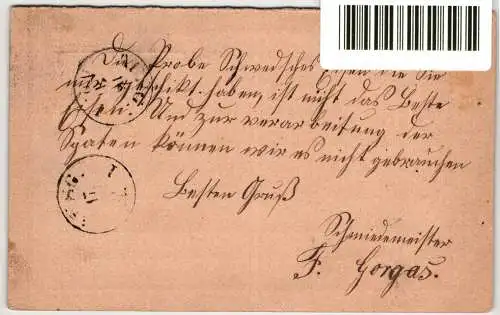 Die Probe Schwedsches Eisen die Sie
mir geschikt haben, ist nicht das Beste
Eisen. Und zur verarbeitung der
Spaten können wir es nicht gebrauchen
Besten Gruß
Schmiedemeister
F. Gorgas.